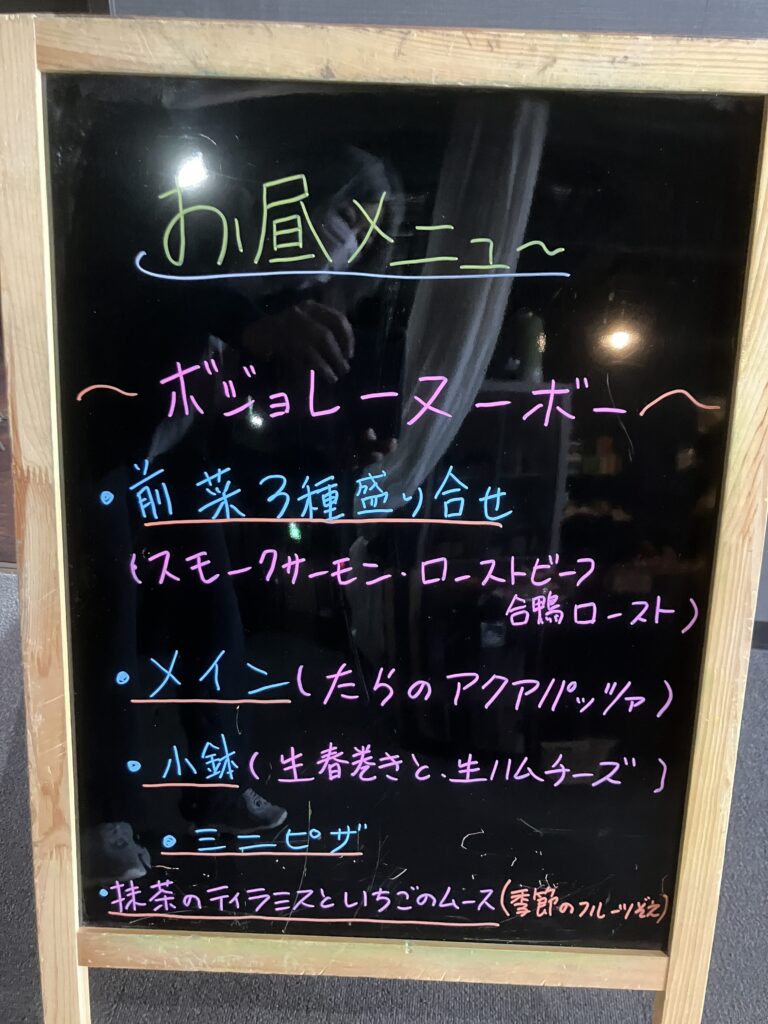 お昼メニュ〜
〜ボジョレーヌーボー〜
・前菜3種盛り合せ
(スモークサーモン・ローストビーフ
合鴨ロースト)
・メイン(たらのアクアパッツァ)
・小鉢(生春巻きと、生ハムチーズ)
・ミニピザ
・抹茶のティラミスといちごのムース(季節のフルーツぞえ)